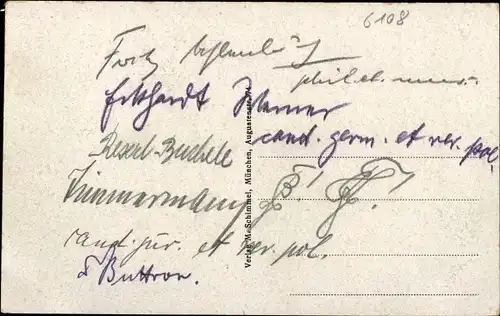 6108
Fritz
phil et
Eckhardt Werner
cand. germ. et rer. pol.
Reserl-Buchele
Zimmermann
cand. jur. et rer. pol.
Buttron.
Verlag M. Schimmel, München, Augustenstr. 74